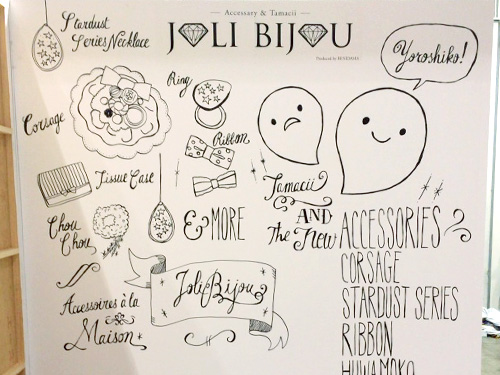 Accessary & Tamacii
JOLI BIJOU
Stardust
Series Necklace
Yoroshiko!
Ring
Corsage
Ribbon
Tissue Case
Tamacii
Chou
Chou
& MORE
AND
The New
ACCESSORIES
CORSAGE
STARDUST SERIES
RIBBON
HUWAMOKO
Joli Bijou
Accessoires à la
Maison